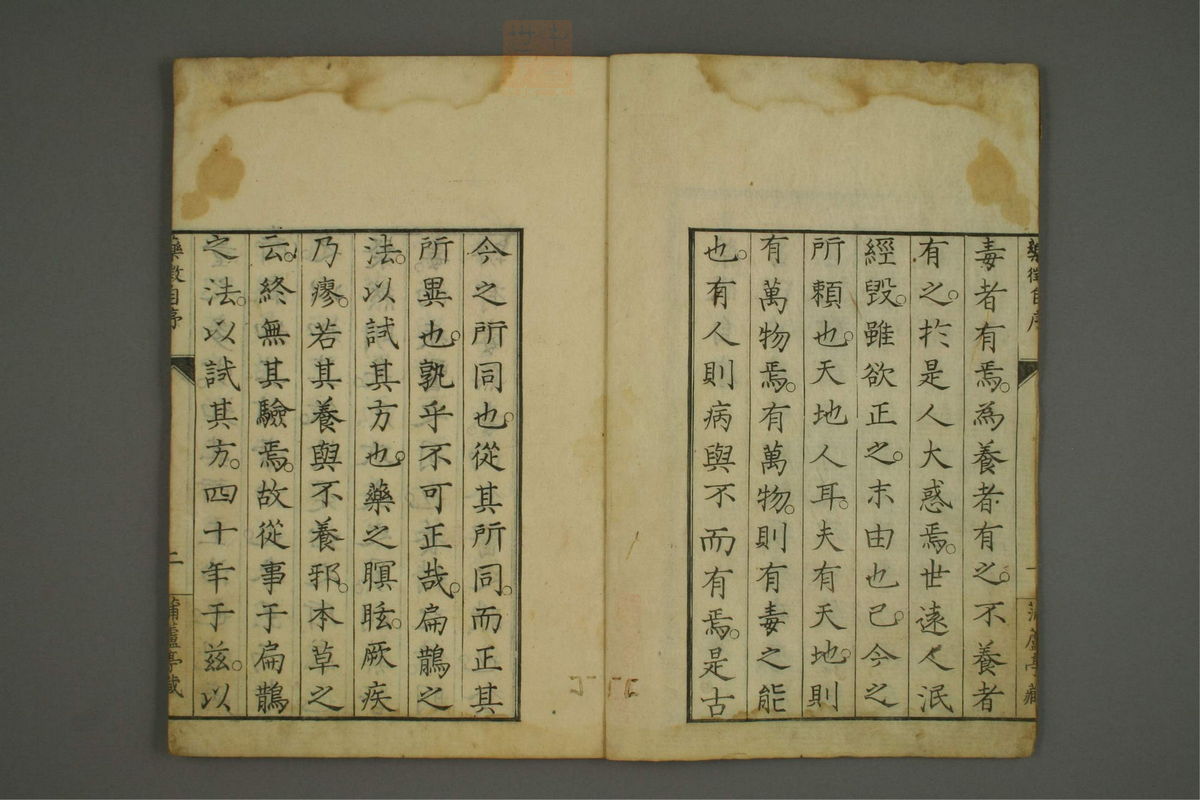 毒者有焉。為養者有之。不養者
有之。於是人大惑焉。世遠人泯
經毀。雖欲正之。末由也已。今之
所賴也。天地人耳。夫有天地。則
有萬物焉。有萬物。則有毒之能
也。有人則病與不而有焉。是古
今之所同也。從其所同。而正其
所異也。孰乎不可正哉。扁鵲之
法。以試其方也。藥之瞑眩。厥疾
乃瘳。若其養與不養邪。本草之
云。終無其驗焉。故從事于扁鵲
之法。以試其方。四十年于茲。以
藥徵自序
二
蒲蘆亭藏